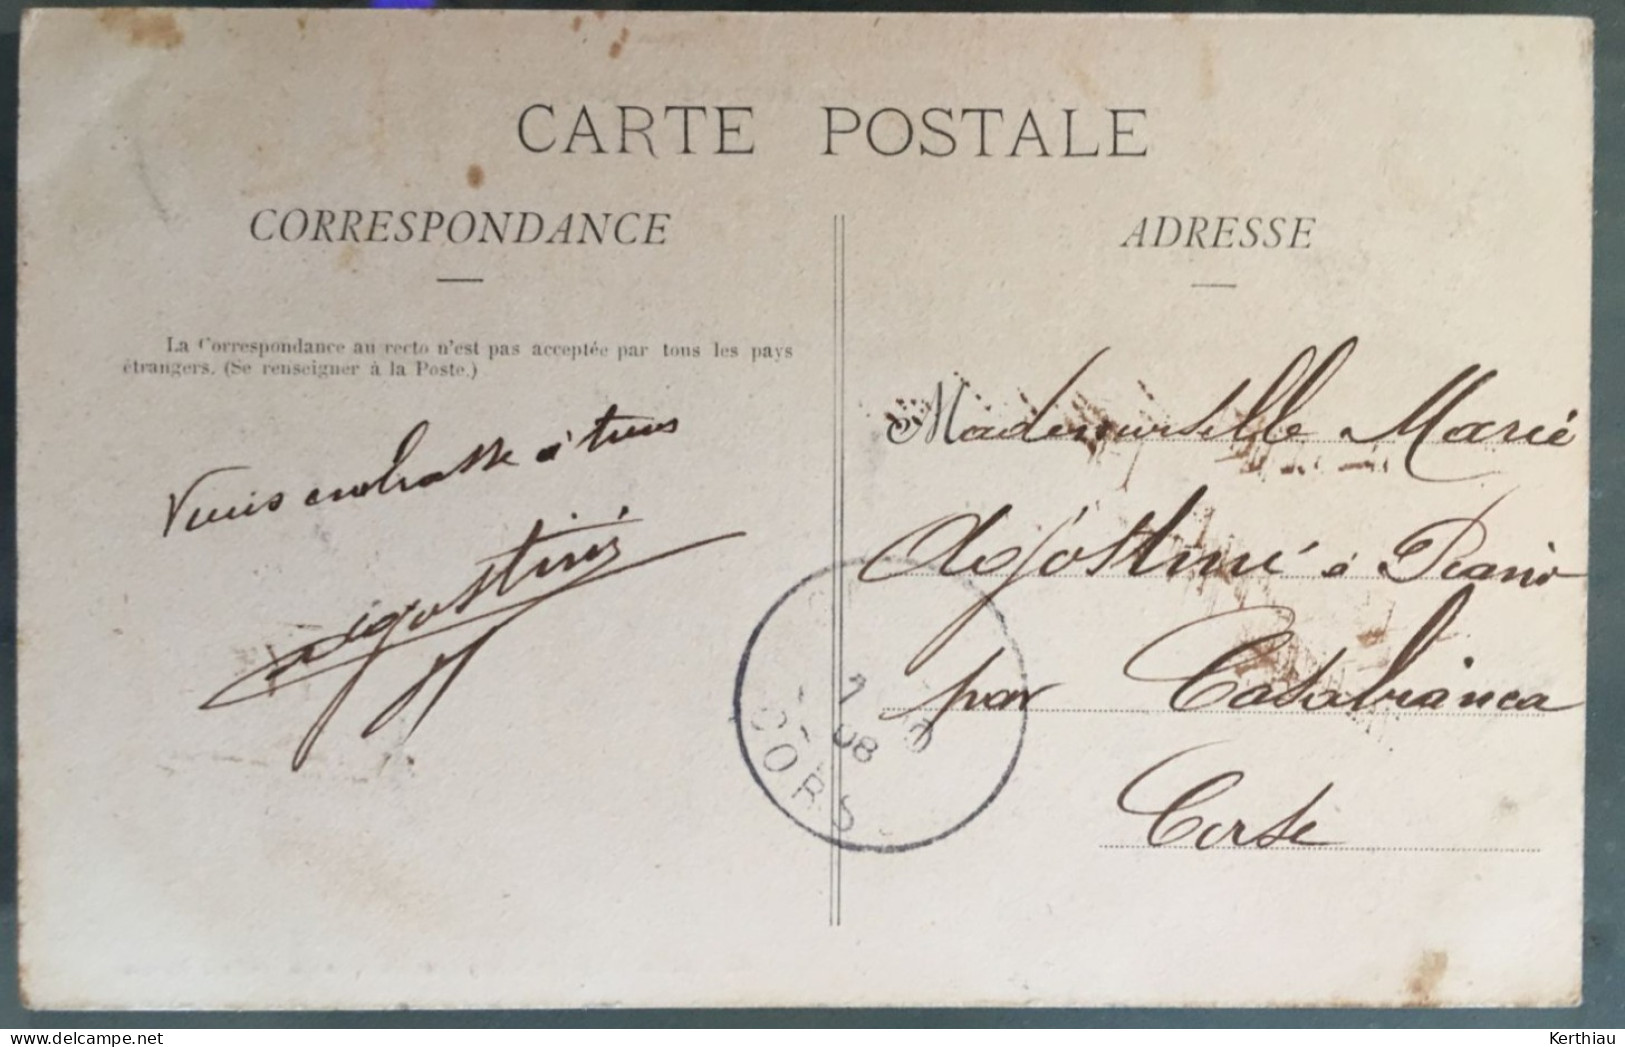 CARTE POSTALE
CORRESPONDANCE
La Correspondance au recto n'est pas acceptée par tous les pays
étrangers. (Se renseigner à la Poste.)
Vous embrasse à tous
Agostini
ADRESSE
Mademoiselle Marie
Agostini à Piano
par Casabianca
Corse
08
CORS
delcampe.net
Kerthiau